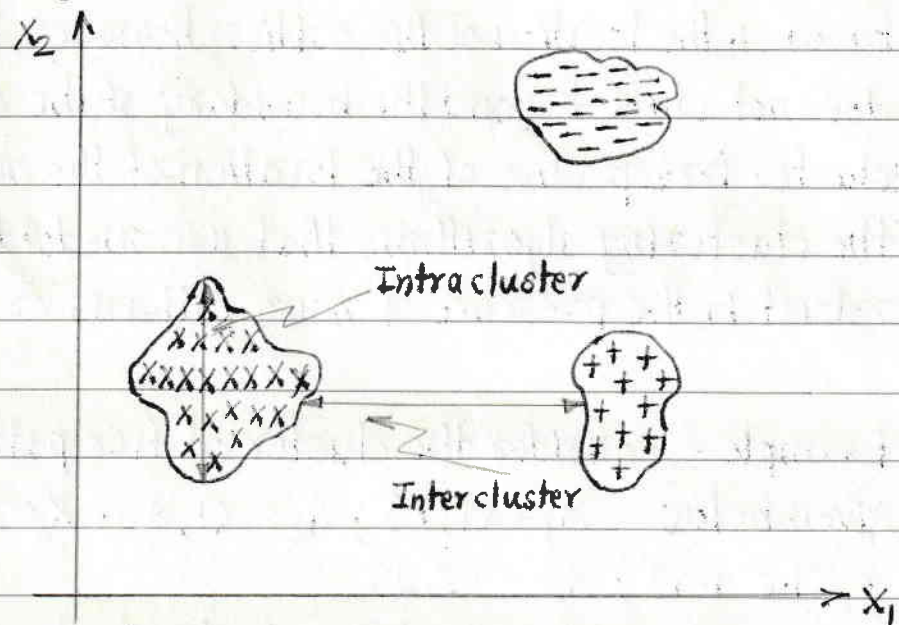 X₂
Intracluster
Intercluster
X₁